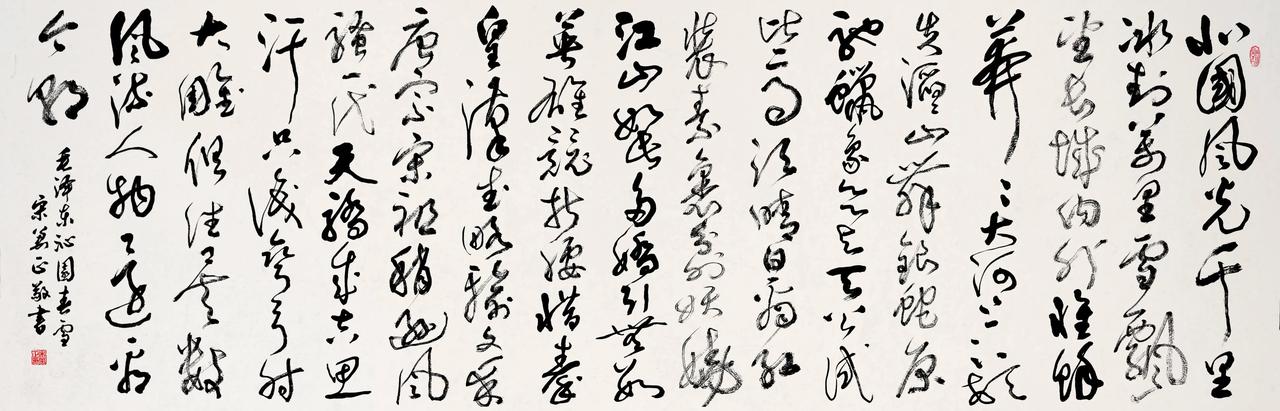 北國風光千里
冰封萬里雪飄
望長城內外惟餘
莽〻大河上下頓
失滔〻山舞銀蛇原
馳蠟象欲與天公試
比高須晴日看紅
裝素裹分外妖嬈
江山如此多嬌引無數
英雄競折腰惜秦
皇漢武略輸文采
唐宗宋祖稍遜風
騷一代天驕成吉思
汗只識彎弓射
大雕俱往矣數
風流人物〻還看
今朝
毛澤東沁園春雪
宋正敬書